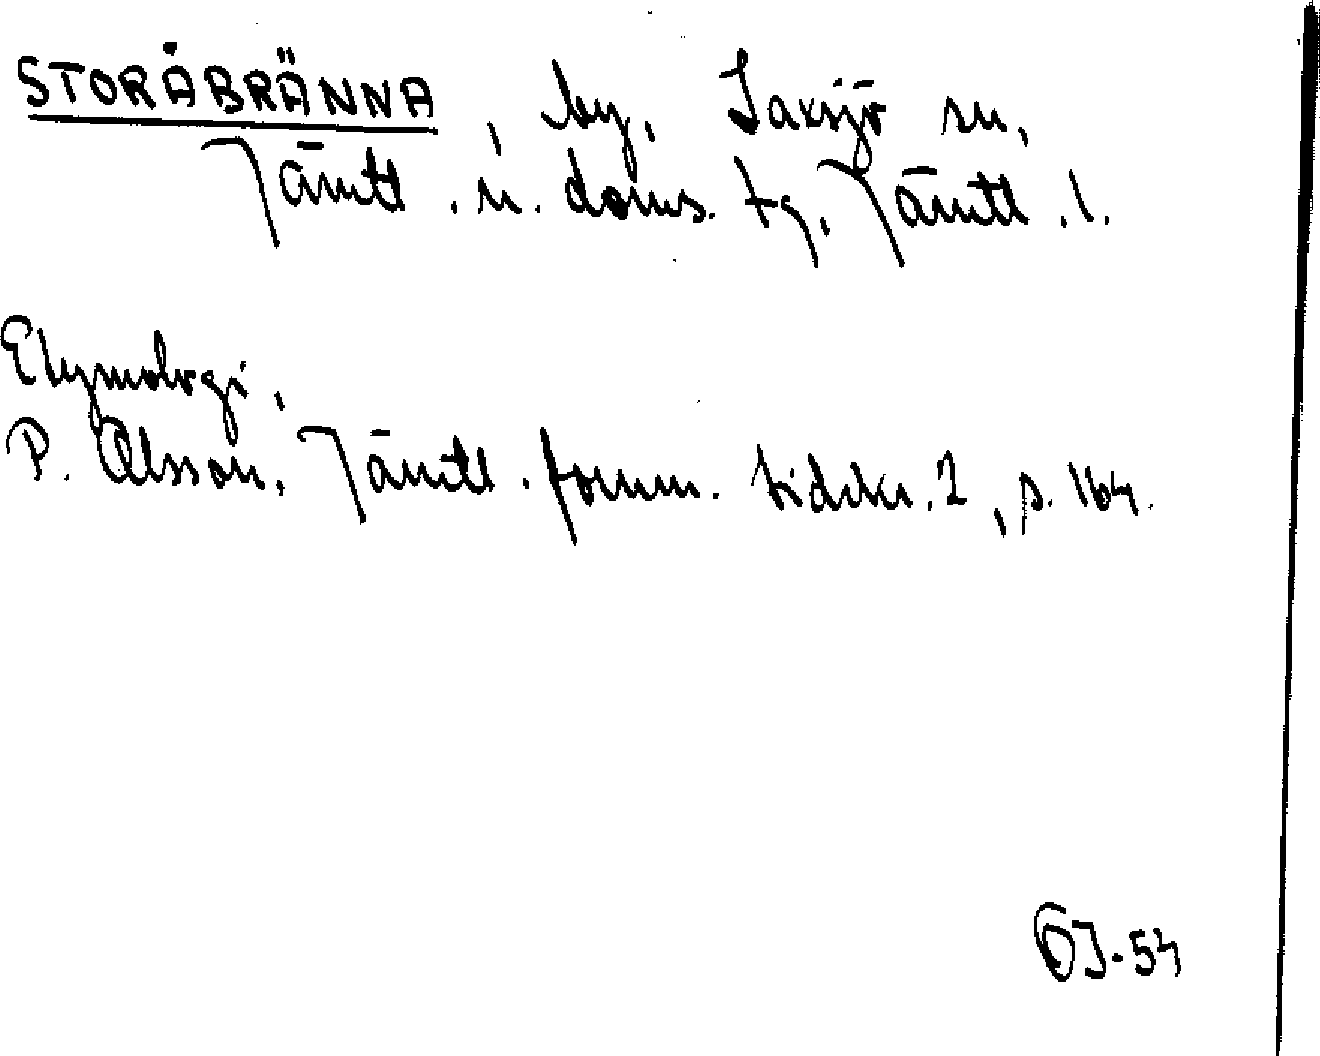 STORÅBRÄNNA, by, Laxsjö sn,
Jämtl. n. doms. tg, Jämtl. l.
Etymologi,
P. Olsson, Jämtl. fornm. tidskr. 2, s. 164.
OJ-54